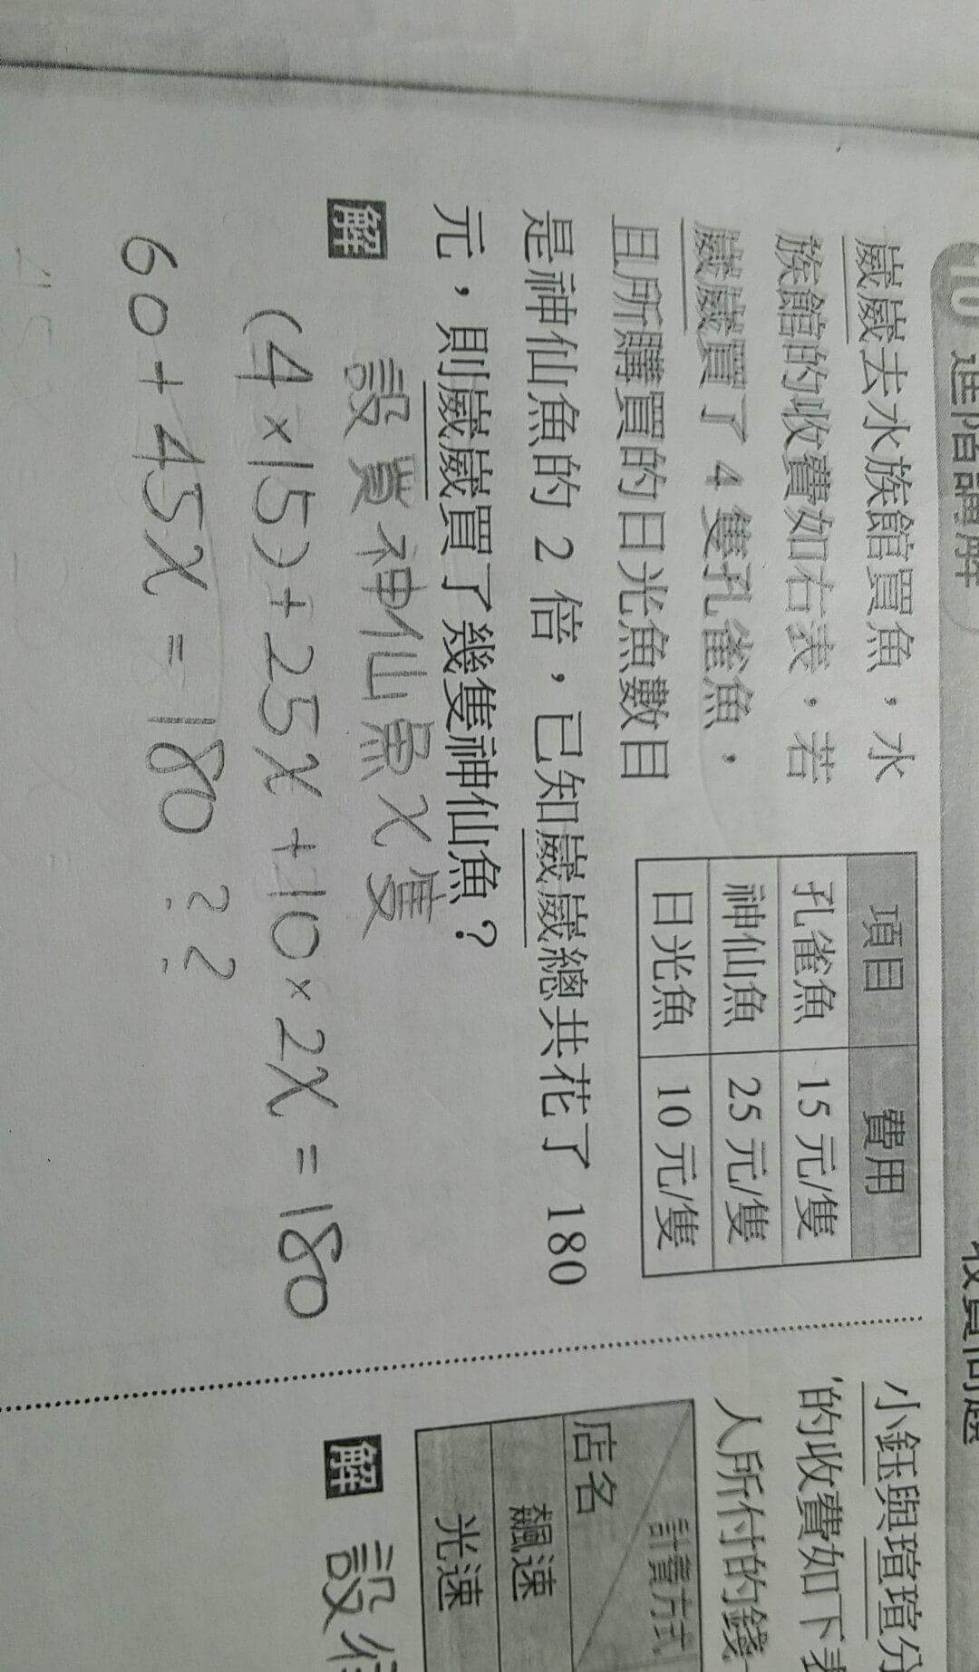 10 進階講解
崴崴去水族館買魚，水
族館的收費如右表，若
崴崴買了 4 隻孔雀魚，
且所購買的日光魚數目
是神仙魚的 2 倍，已知崴崴總共花了 180
元，則崴崴買了幾隻神仙魚？
項目 費用
孔雀魚 15 元/隻
神仙魚 25 元/隻
日光魚 10 元/隻
解 設買神仙魚 x 隻
(4×15)+25x+10×2x=180
60+45x=180 ??
收費問題
小鈺與瑄瑄分
的收費如下表
人所付的錢
計費方式
店名
飆速
光速
解 設